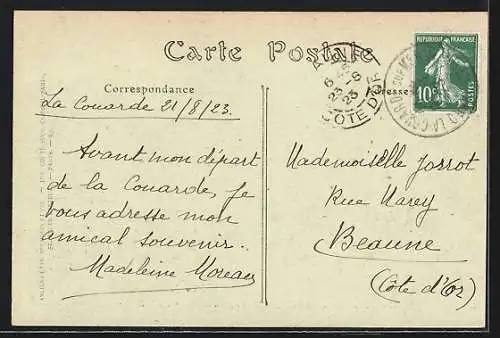 Carte Postale
Correspondance
Adresse
RÉPUBLIQUE FRANÇAISE
10c
POSTES
COTE D'OR
La Couarde 21/8/23.
Avant mon départ
de la Couarde, je
vous adresse mon
amical souvenir.
Madeleine Moreau
Mademoiselle Jorrot
Rue Marey
Beaune
(Côte d'Or)